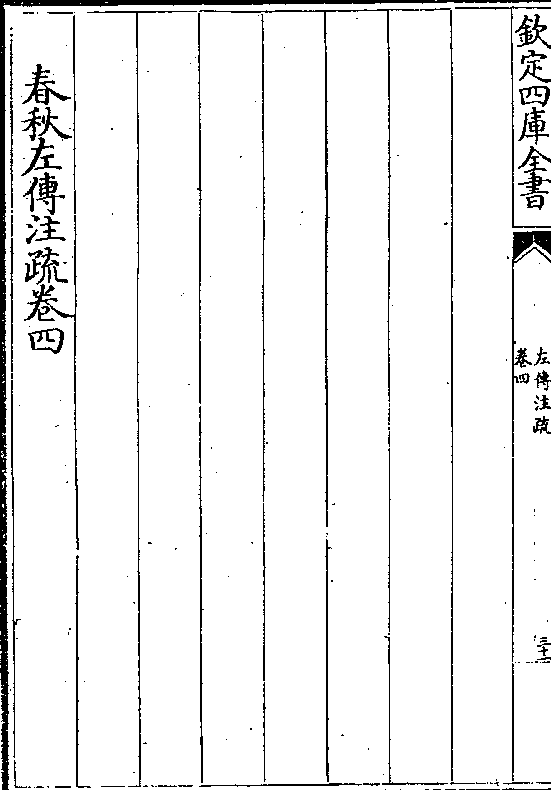 欽定四庫全書
左傳注疏
卷四
春秋左傳注疏卷四